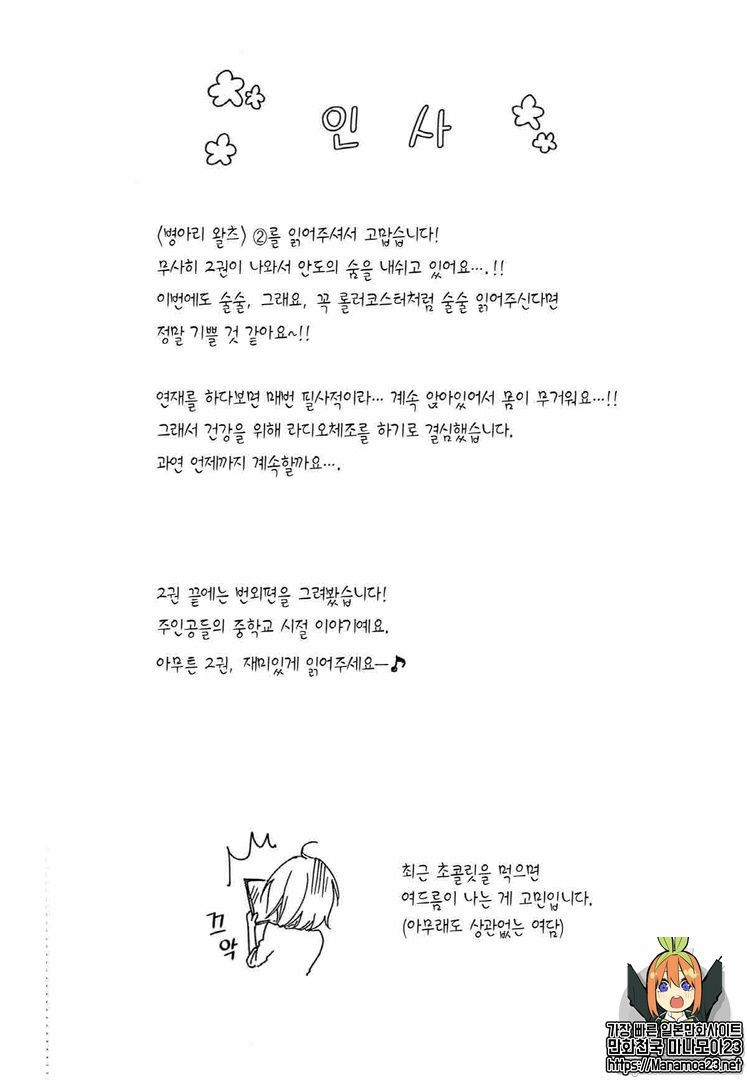 인 사
<병아리 왈츠> ②를 읽어주셔서 고맙습니다!
무사히 2권이 나와서 안도의 숨을 내쉬고 있어요….!!
이번에도 술술, 그래요, 꼭 롤러코스터처럼 슬슬 읽어주신다면
정말 기쁠 것 같아요~!!
연재를 하다보면 매번 필사적이라… 계속 앉아있어서 몸이 무거워요…!!
그래서 건강을 위해 라디오체조를 하기로 결심했습니다.
과연 언제까지 계속할까요….
2권 끝에는 번외편을 그려봤습니다!
주인공들의 중학교 시절 이야기예요.
아무튼 2권, 재미있게 읽어주세요—♪
끄악
최근 초콜릿을 먹으면
여드름이 나는 게 고민입니다.
(아무래도 상관없는 여담)
가장 빠른 일본만화사이트
만화천국 마나모아23
https://Manamoa23.net